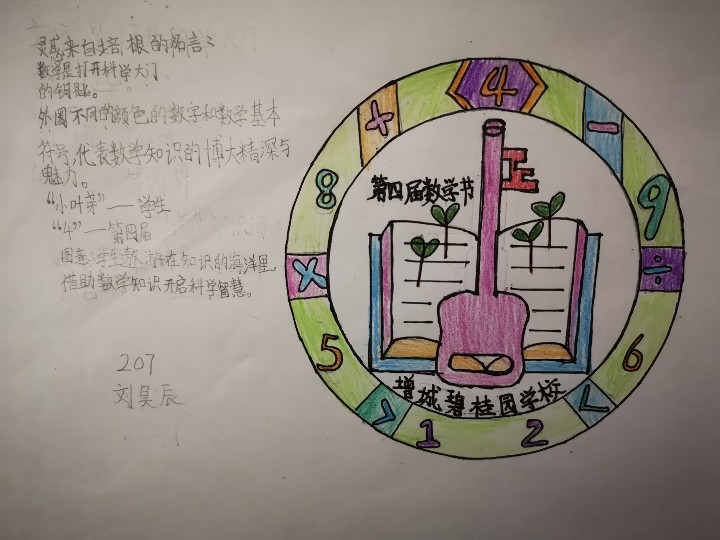 灵感来自培根的名言：
数学是打开科学大门
的钥匙。
外圈不同的颜色的数字和数学基本
符号，代表数学知识的博大精深与
魅力。
“小叶芽”——学生
“4”——第四届
图意：学生遨游在知识的海洋里，
借助数学知识开启科学智慧。
207
刘昊辰
4
+
-
8
9
第四届数学节
×
÷
5
6
增城碧桂园学校
>
<
1
2